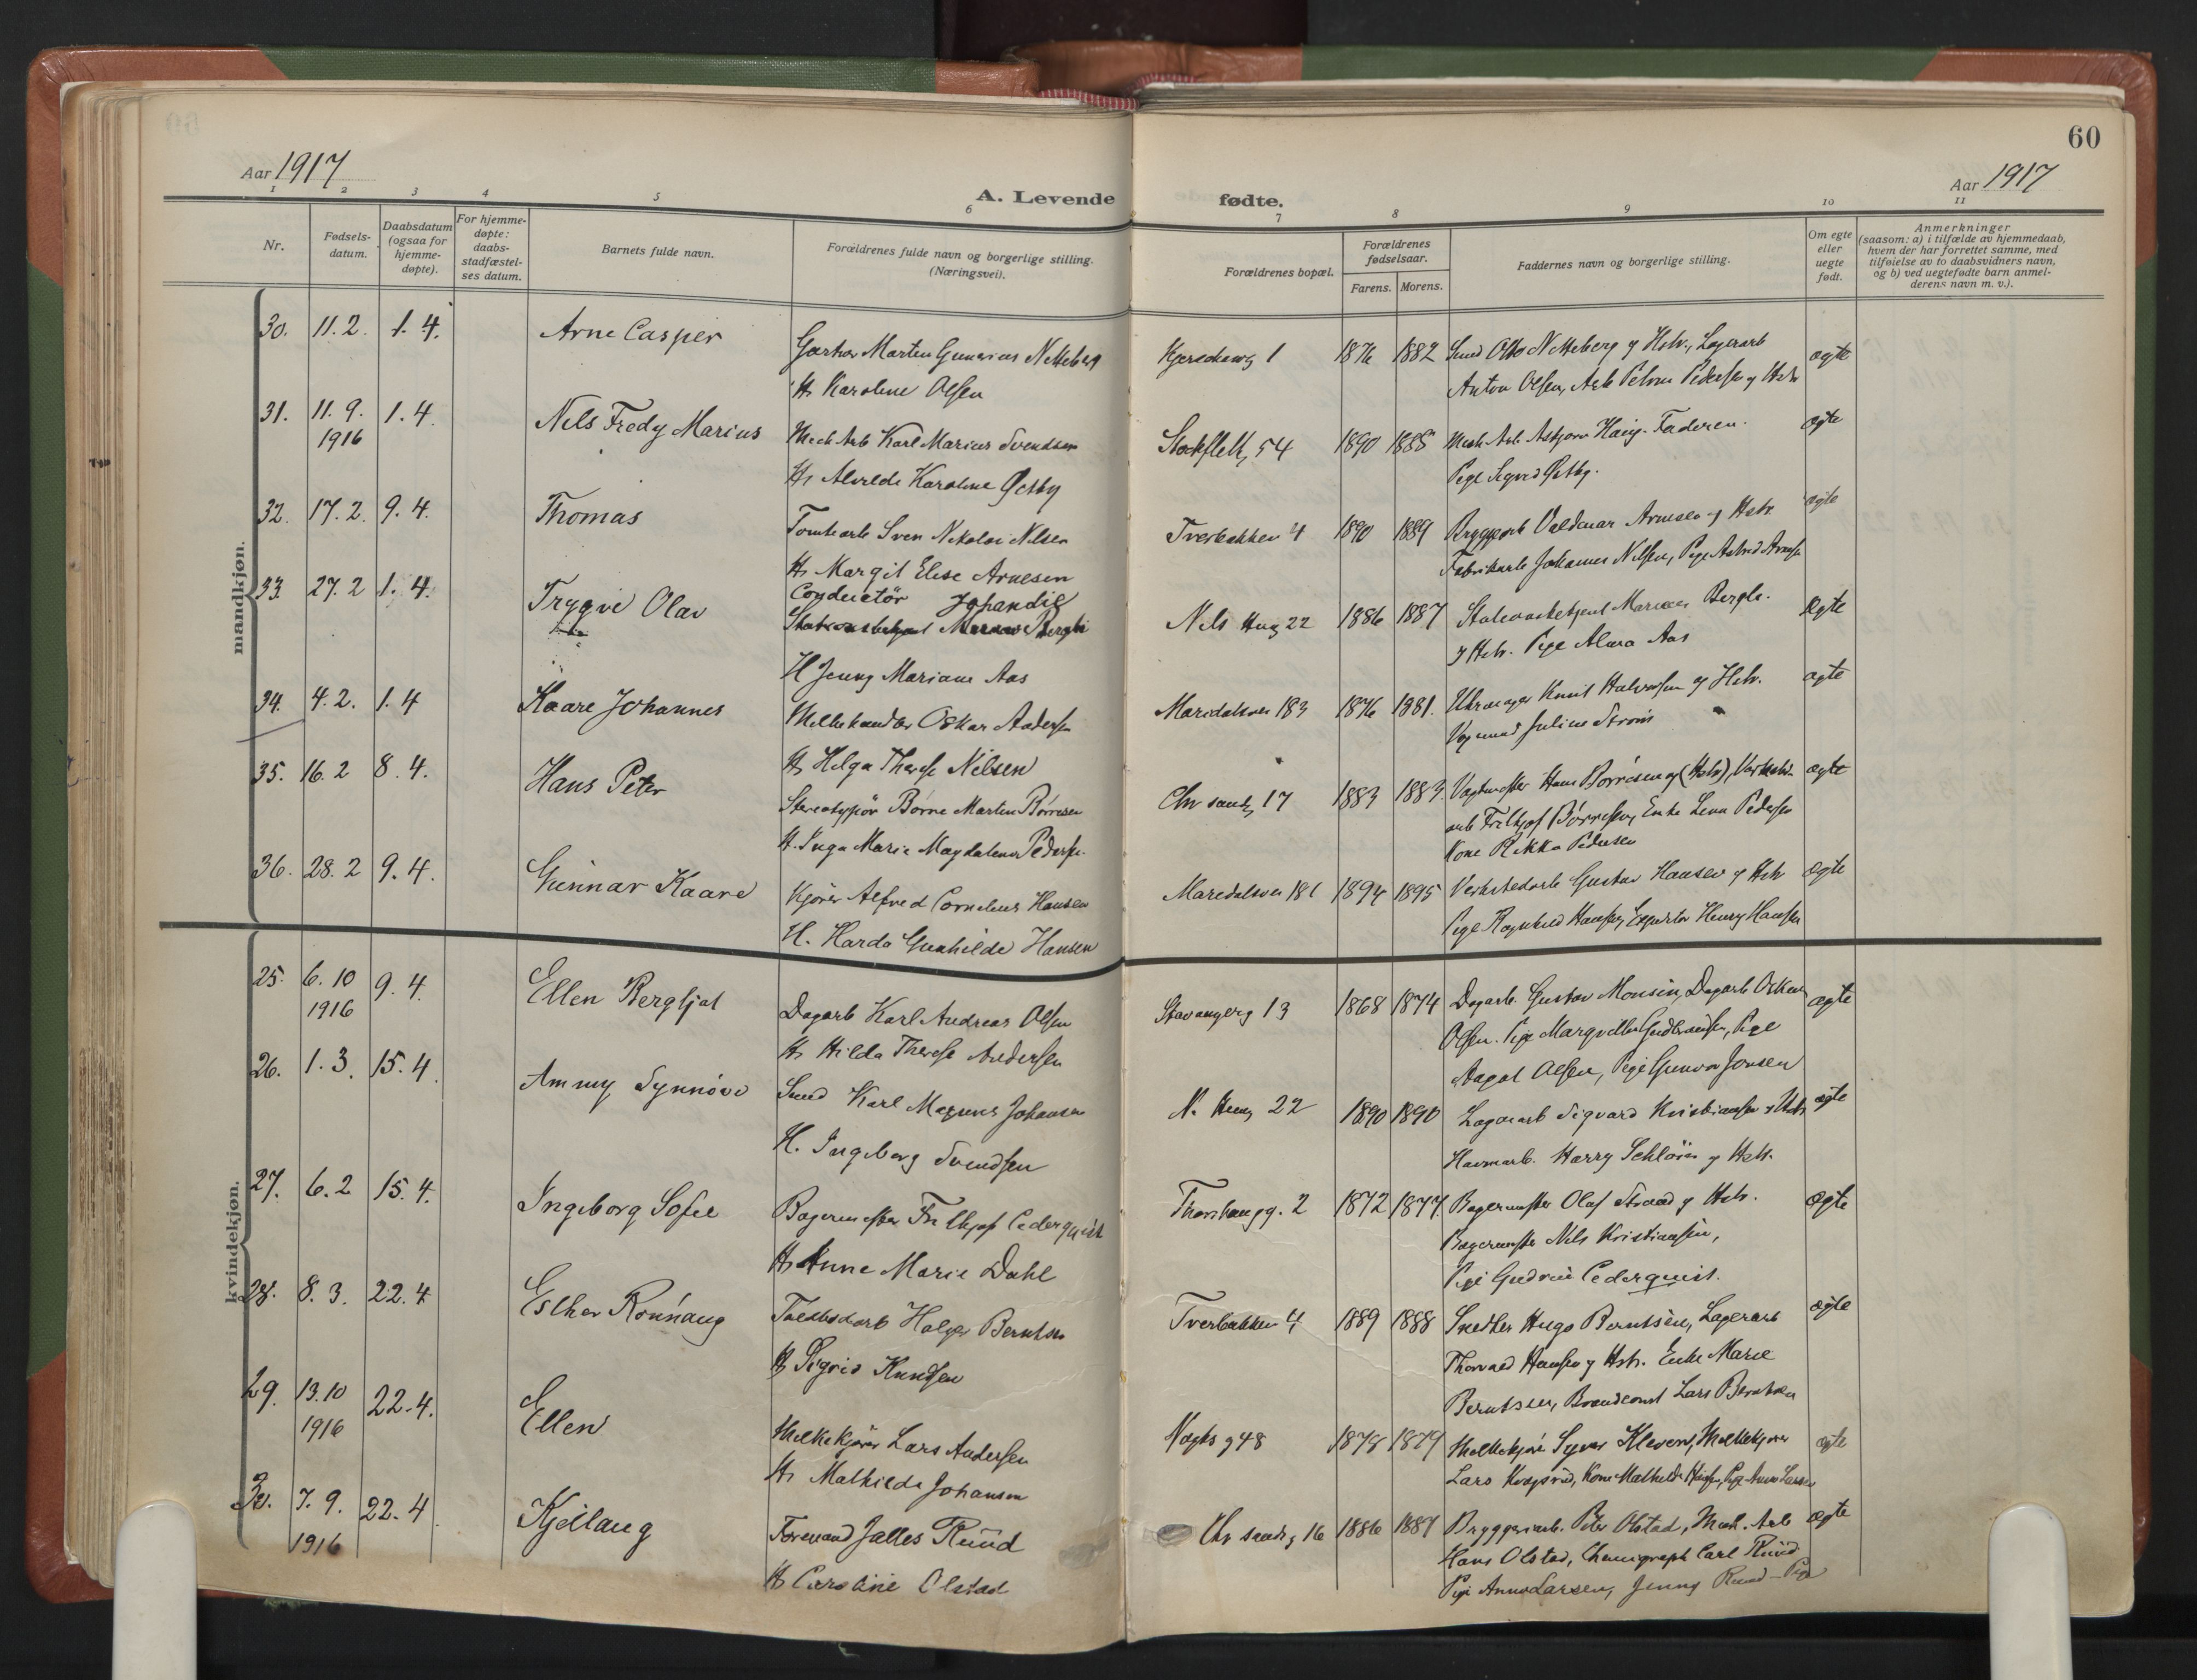 60
Aar 1917
Aar 1917
A. Levende fødte.
1 2 3 4 5 6 7 8 9 10 11
Nr.
Fødsels-
datum.
Daabsdatum
(ogsaa for
hjemme-
døpte).
For hjemme-
døpte:
daabs-
stadfæstel-
ses datum.
Barnets fulde navn.
Forældrenes fulde navn og borgerlige stilling.
(Næringsvei).
Forældrenes bopæl.
Forældrenes
fødselsaar.
Farens. Morens.
Faddernes navn og borgerlige stilling.
Om egte
eller
uegte
født.
Anmerkninger
(saasom: a) i tilfælde av hjemmedaab,
hvem der har forrettet samme, med
tilføielse av to daabsvidners navn,
og b) ved uegtefødte barn anmel-
derens navn m. v.).
mandkjøn.
30. 11.2. 1.4. Arne Casper
Marten Gunerius Netteberg
H. Karoline Olsen
1 1876 1882 Smed Otto Netteberg og Hstr., Lagerarb
Anton Olsen, Arb Pedersen og Hstr
ægte
31. 11.9. 1.4. Nils Fredy Marius
1916
Mek Arb Karl Marius Svendsen
H. Alvilde Karoline Østby
Stockflethg 54 1890 1888 Mek Arb Asbjørn Haug. Faderen.
Pige Sigrid Østby.
ægte
32. 17.2. 9.4. Thomas
Tomtearb Sven Nikolai Nilsen
H. Margit Elise Arnesen
Tverbakken 4 1890 1889 Bryggearb Valdemar Arnesen og Hstr
Fabrikarb Johannes Nilsen, Pige Astrid Arnesen
ægte
33. 27.2 1.4. Trygve Olav
Conductør Johan
Bergli
H Jenny Mariane Aas
Nils Hug 22 1886 1887 Marius Bergli.
og Hstr. Pige Alma Aas
ægte
34. 4.2. 1.4 Kaare Johannes
Melkehandler Oskar Andersen
H. Helga Therese Nilsen
Maridalsvei 183 1876 1881. Uhrmager Knut Halvorsen og Hstr.
Julius Strøm
ægte
35. 16.2 8.4. Hans Peter
Stereotypør Børre Martin Børresen
H. Inga Marie Magdalena Pedersen
Chr sandg 17 1883 1883. Vagtmester Hans Børresen og (Hstr), Verksted-
arb Fritjof Børresen, Enke Lena Pedersen
Kone Rikka Pedersen
ægte
36. 28.2 9.4. Gunnar Kaare
Kjører Alfred Cornelius Hansen
H. Harda Gunhilde Hansen
Maridalsvei 181 1894 1895 Verkstedarb Gustav Hansen og Hstr
Pige Ragnhild Hansen, Expeditør Henry Hansen
ægte
kvindekjøn.
25. 6.10 9.4. Ellen Bergljot
1916
Dagarb Karl Andreas Olsen
H. Hilda Therese Andersen
Stavangerg 13 1868 1874 Dagarb. Gustav Monsen, Dagarb Oskar
Olsen. Pige Gudbrandsen, Pige
Aagot Olsen, Pige Gunvor Jonsen
ægte
26. 1.3. 15.4. Ammy Synnøve
Smed Karl Magnus Johansen
H. Ingeborg Svendsen
N. Hug 22 1890 1890 Lagerarb Sigvard Kristiansen og Hstr
Havnearb. Harry Schlöier og Hstr.
ægte
27. 6.2 15.4. Ingeborg Sofie
Bagermester Fritjof Cederquist
H. Anne Marie Dahl
Thorshaugg. 2 1872 1877. Bagermester Olaf Straad og Hstr.
Bagermester Nils Kristiansen,
Pige Gudrun Cederquist.
ægte
28. 8.3. 22.4. Esther Rønnaug
Toldbodarb Holger Berntsen
H. Sigrid Knudsen
Tverbakken 4 1889 1888 Snedker Hugo Berntsen, Lagerarb
Thorvald Hansen og Hstr. Enke Marie
Berntsen, Brandconst Lars Berntsen
ægte
29. 13.10 22.4. Ellen
1916
Melkekjører Lars Andersen
H. Mathilde Johansen
Vogts g 48 1878 1879 Melkekjører Syver Kleven, Melkekjører
Lars, Kone Mathilde, Pige Anna Larsen
ægte
30. 7.9. 22.4. Kjellaug
1916
Formand Jalles Ruud
H. Caroline Olstad
Chr sandsg 16 1886 1887 Bryggeriarb. Peter Olstad, Mek. Arb
Hans Olstad, Chemigraph Carl Ruud
Pige Anna Larsen, Jenny Ruud - Pige
ægte